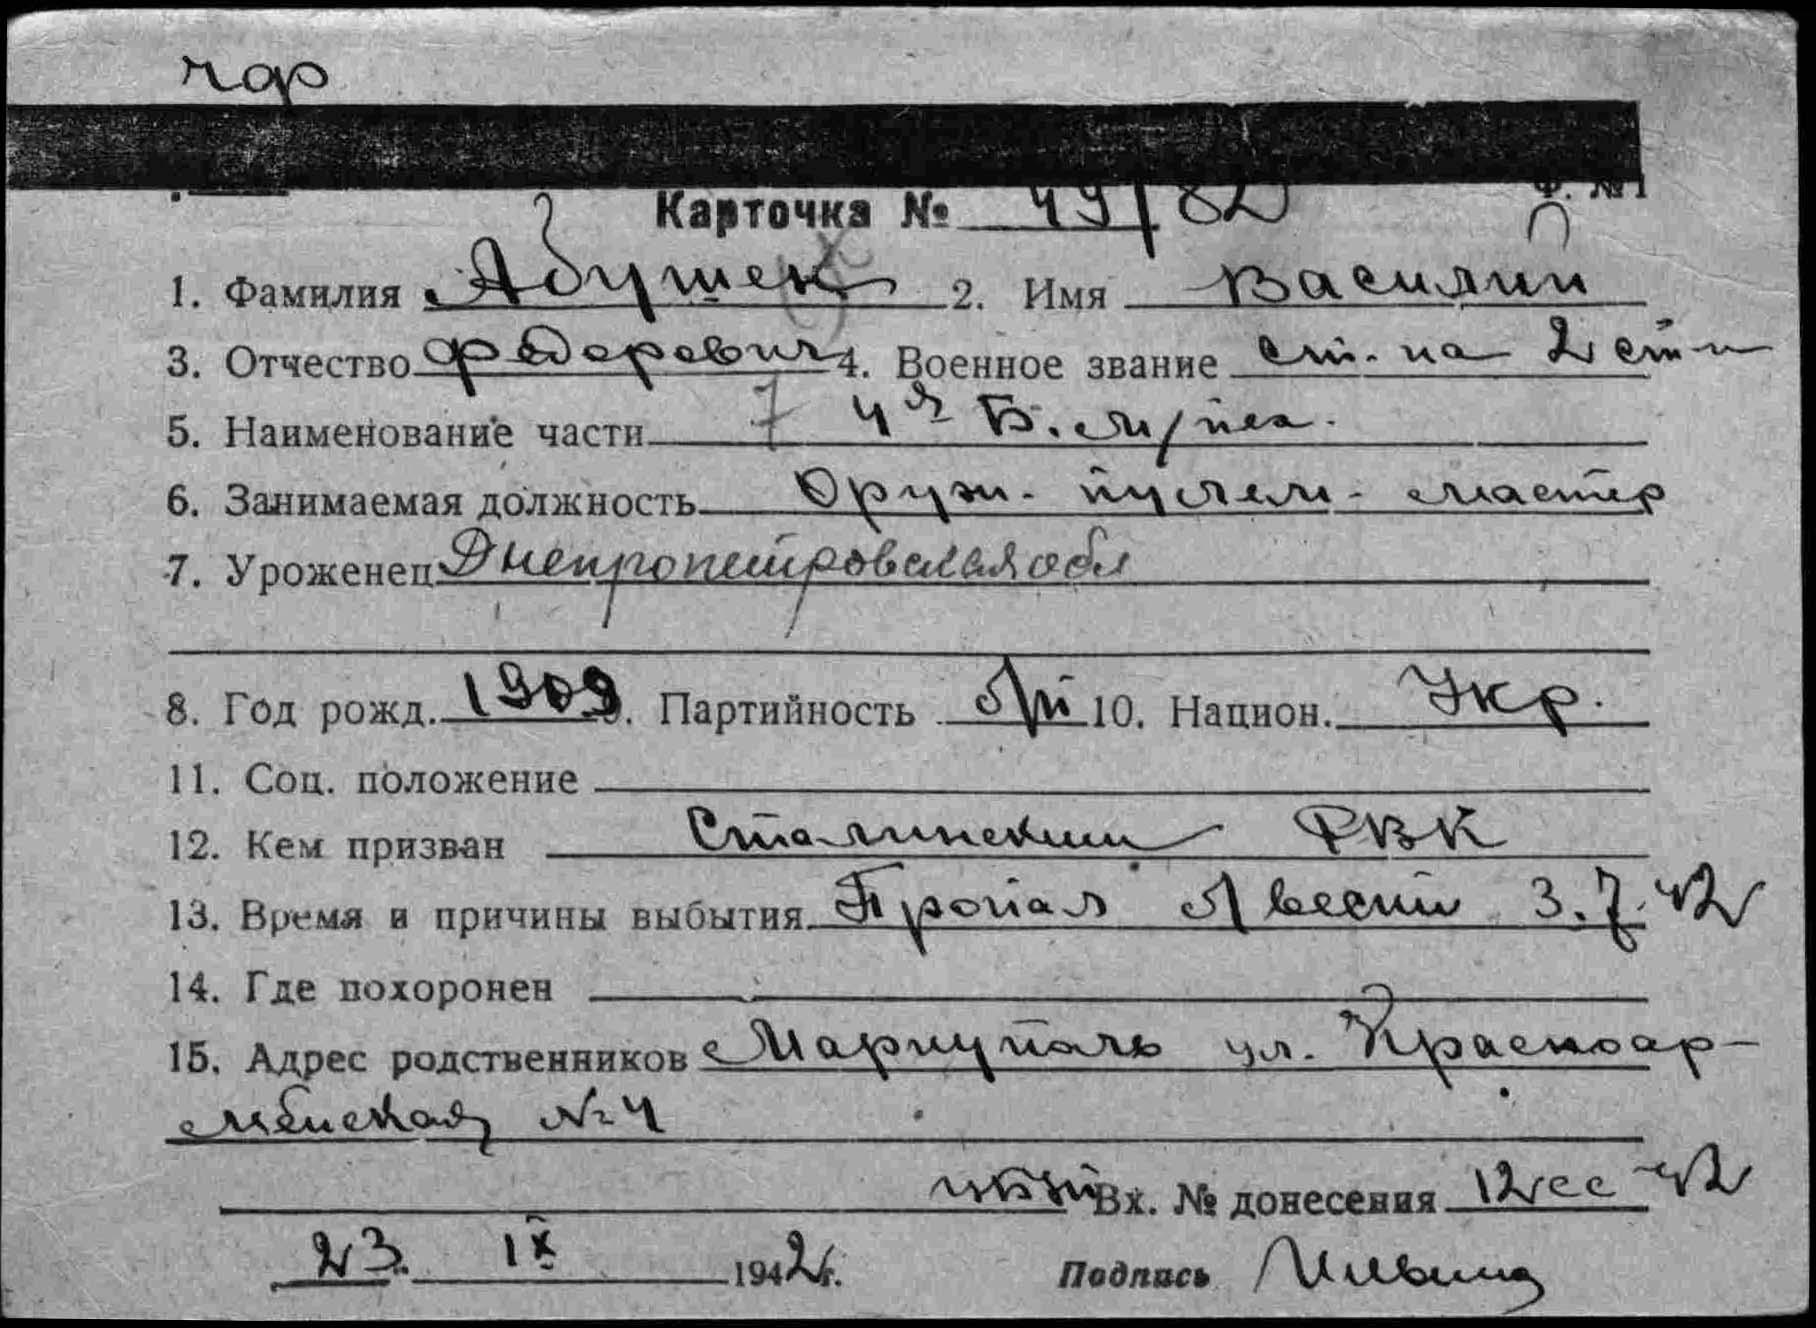 чф
Ф. № 1
Карточка № 49/82
1. Фамилия Абушек 2. Имя Василий
3. Отчество Федорович 4. Военное звание ст-на 2 ст-и
5. Наименование части 7 Б.
6. Занимаемая должность Оруж. пулем. мастер
7. Уроженец Днепропетровская обл
8. Год рожд. 1909 9. Партийность б/п 10. Национ. Укр.
11. Соц. положение
12. Кем призван Сталинским РВК
13. Время и причины выбытия Пропал б/вести 3.7.42
14. Где похоронен
15. Адрес родственников Мариуполь ул. Красноар-
мейская № 4
Вх. № донесения 12сс 42
23. IX 1942г. Подпись